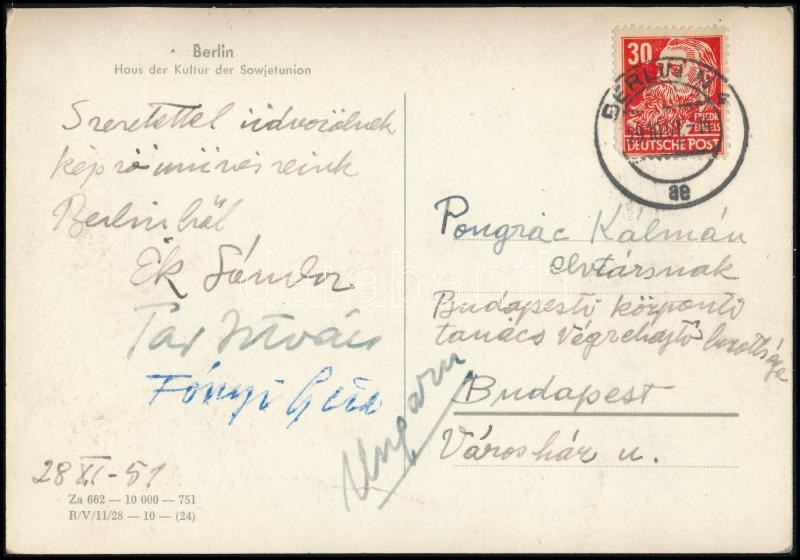 Berlin
Haus der Kultur der Sowjetunion
Szeretettel üdvözölnek
képzőművészeink
Berlinből
Ék Sándor
Tar István
Fónyi Géza
28 XI-51
Za 662 — 10 000 — 751
R/V/11/28 — 10 — (24)
30
FRIEDR.
ENGELS
DEUTSCHE POST
BERLIN N 4
ae
Pongrác Kálmán
elvtársnak
Budapesti központi
tanács Végrehajtó bizottsága
Budapest
Városház u.
Ungarn